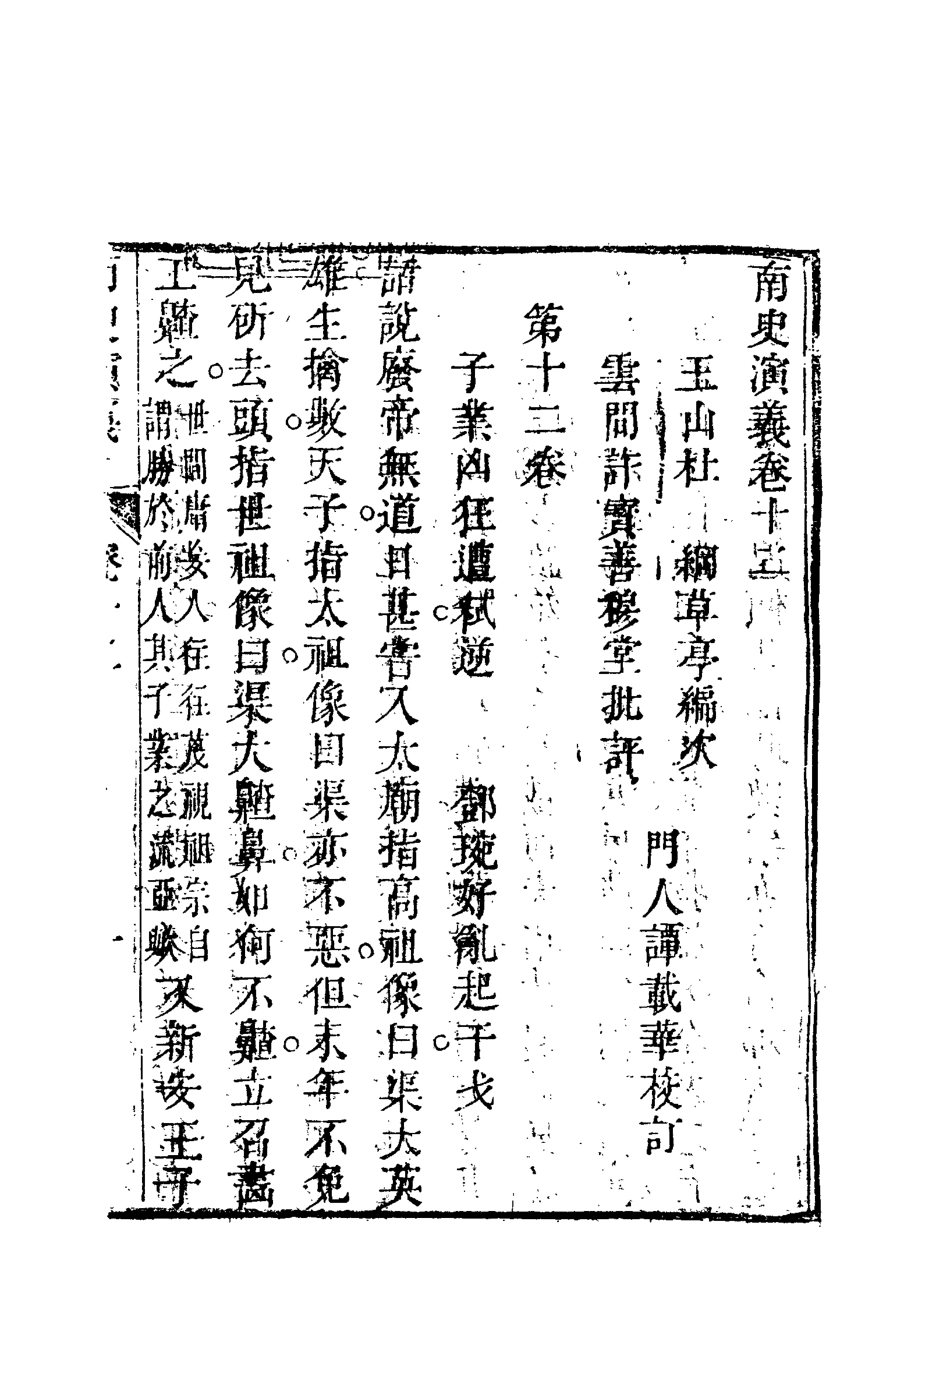 南史演義卷十二
玉山杜 綱草亭編次
雲間許寶善穆堂批評
門人譚載華校訂
第十二卷
子業凶狂遭弒逆 鄧琬好亂起干戈
話說廢帝無道日甚嘗入太廟指高祖像曰渠大英
雄生擒數天子指太祖像曰渠亦不惡但末年不免
兒斫去頭指世祖像曰渠大齇鼻如何不齇立召畫
工齇之世間庸妄人在在茂視祖宗自
謂勝於前人其子業之流亞歟又新安王子